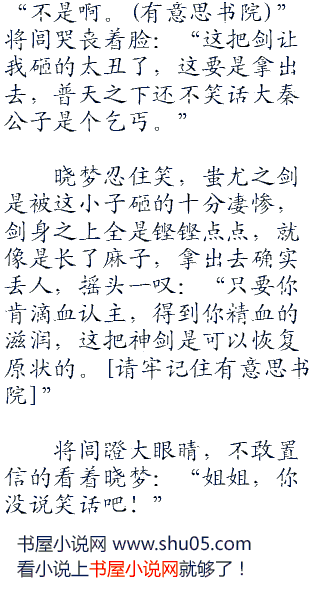 “不是啊。(有意思书院)”
将闾哭丧着脸：“这把剑让
我砸的太丑了，这要是拿出
去，普天之下还不笑话大秦
公子是个乞丐。”
晓梦忍住笑，蚩尤之剑
是被这小子砸的十分凄惨，
剑身之上全是铿铿点点，就
像是长了麻子，拿出去确实
丢人，摇头一叹：“只要你
肯滴血认主，得到你精血的
滋润，这把神剑是可以恢复
原状的。[请牢记住有意思书
院]”
将闾瞪大眼睛，不敢置
信的看着晓梦：“姐姐，你
没说笑话吧！”
书屋小说网 www.shu05.com
看小说上书屋小说网就够了！